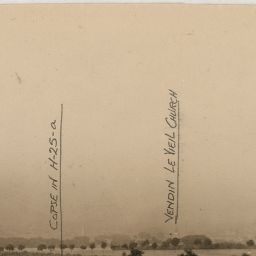 COPSE IN H-25-a
VENDIN LE VIEIL CHURCH